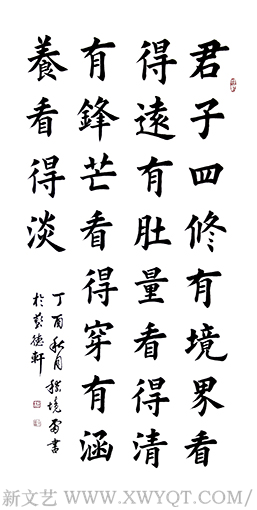 君子四修有境界看
得遠有肚量看得清
有鋒芒看得穿有涵
養看得淡
丁酉秋月
書
於藝德軒
新文艺 WWW.XWYQT.COM/